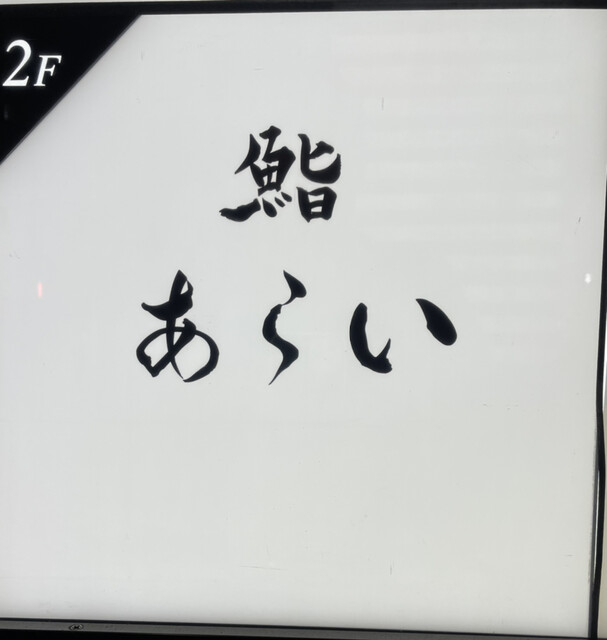 2F
鮨
あらい